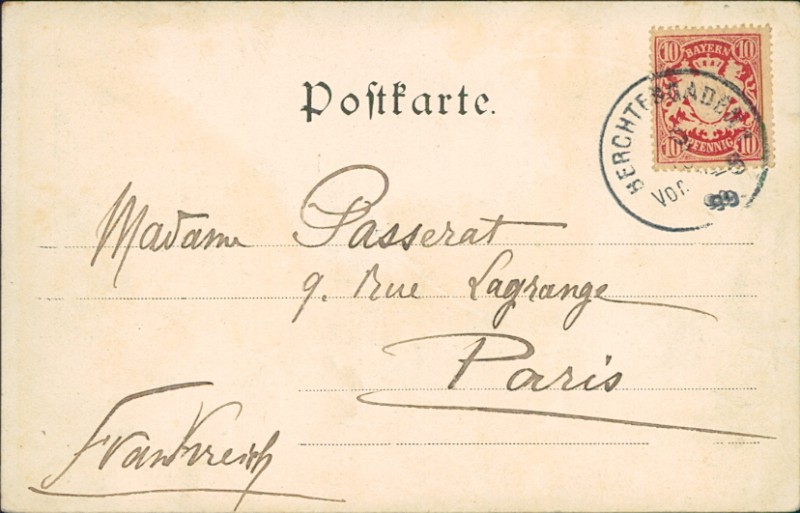 Postkarte.
10 BAYERN 10
10 PFENNIG 10
BERCHTESGADEN
99
Madame Passerat
9. Rue Lagrange
Paris
Frankreich